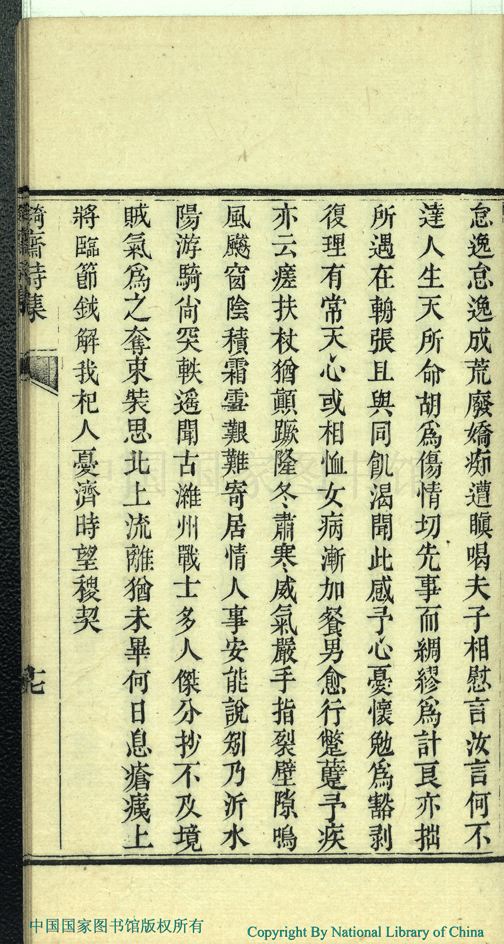 怠逸怠逸成荒廢嬌痴遭瞋喝夫子相慰言汝言何不
達人生天所命胡為傷情切先事而綢繆為計良亦拙
所遇在輈張且與同飢渴聞此感予心憂懷勉為豁剥
復理有常天心或相恤女病漸加餐男愈行蹩躠予疾
亦云瘥扶杖猶顛蹶隆冬肅寒威氣嚴手指裂壁隙鳴
風颼窗陰積霜雪艱難寄居情人事安能說矧乃沂水
陽游騎尙突軼遙聞古濰州戰士多人傑分抄不及境
賊氣為之奪束裝思北上流離猶未畢何日息瘡痍上
將臨節鉞解我杞人憂濟時望稷契
齋詩集
十七
中国国家图书馆
中国国家图书馆版权所有
Copyright By National Library of China